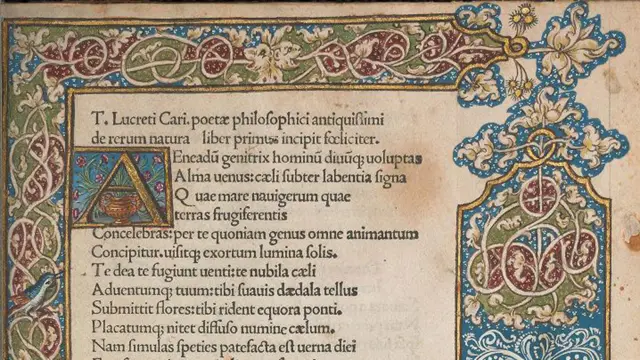 T. Lucreti Cari. poetæ philosophici antiquissimi
de rerum natura liber primus incipit fœliciter.
AENEADŪ genitrix hominū diuūq; uoluptas
Alma uenus: cæli subter labentia signa
Quæ mare nauigerum quae
terras frugiferentis
Concelebras: per te quoniam genus omne animantum
Concipitur. uisitq; exortum lumina solis.
Te dea te fugiunt uenti: te nubila cæli
Aduentumq; tuum: tibi suauis dædala tellus
Submittit flores: tibi rident equora ponti.
Placatumq; nitet diffuso numine cælum.
Nam simulas speties patefacta est uerna diei